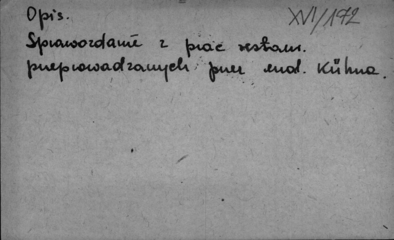 Opis.
XVI/172
Sprawozdanie z prac restaur.
przeprowadzanych przez
Kühna.